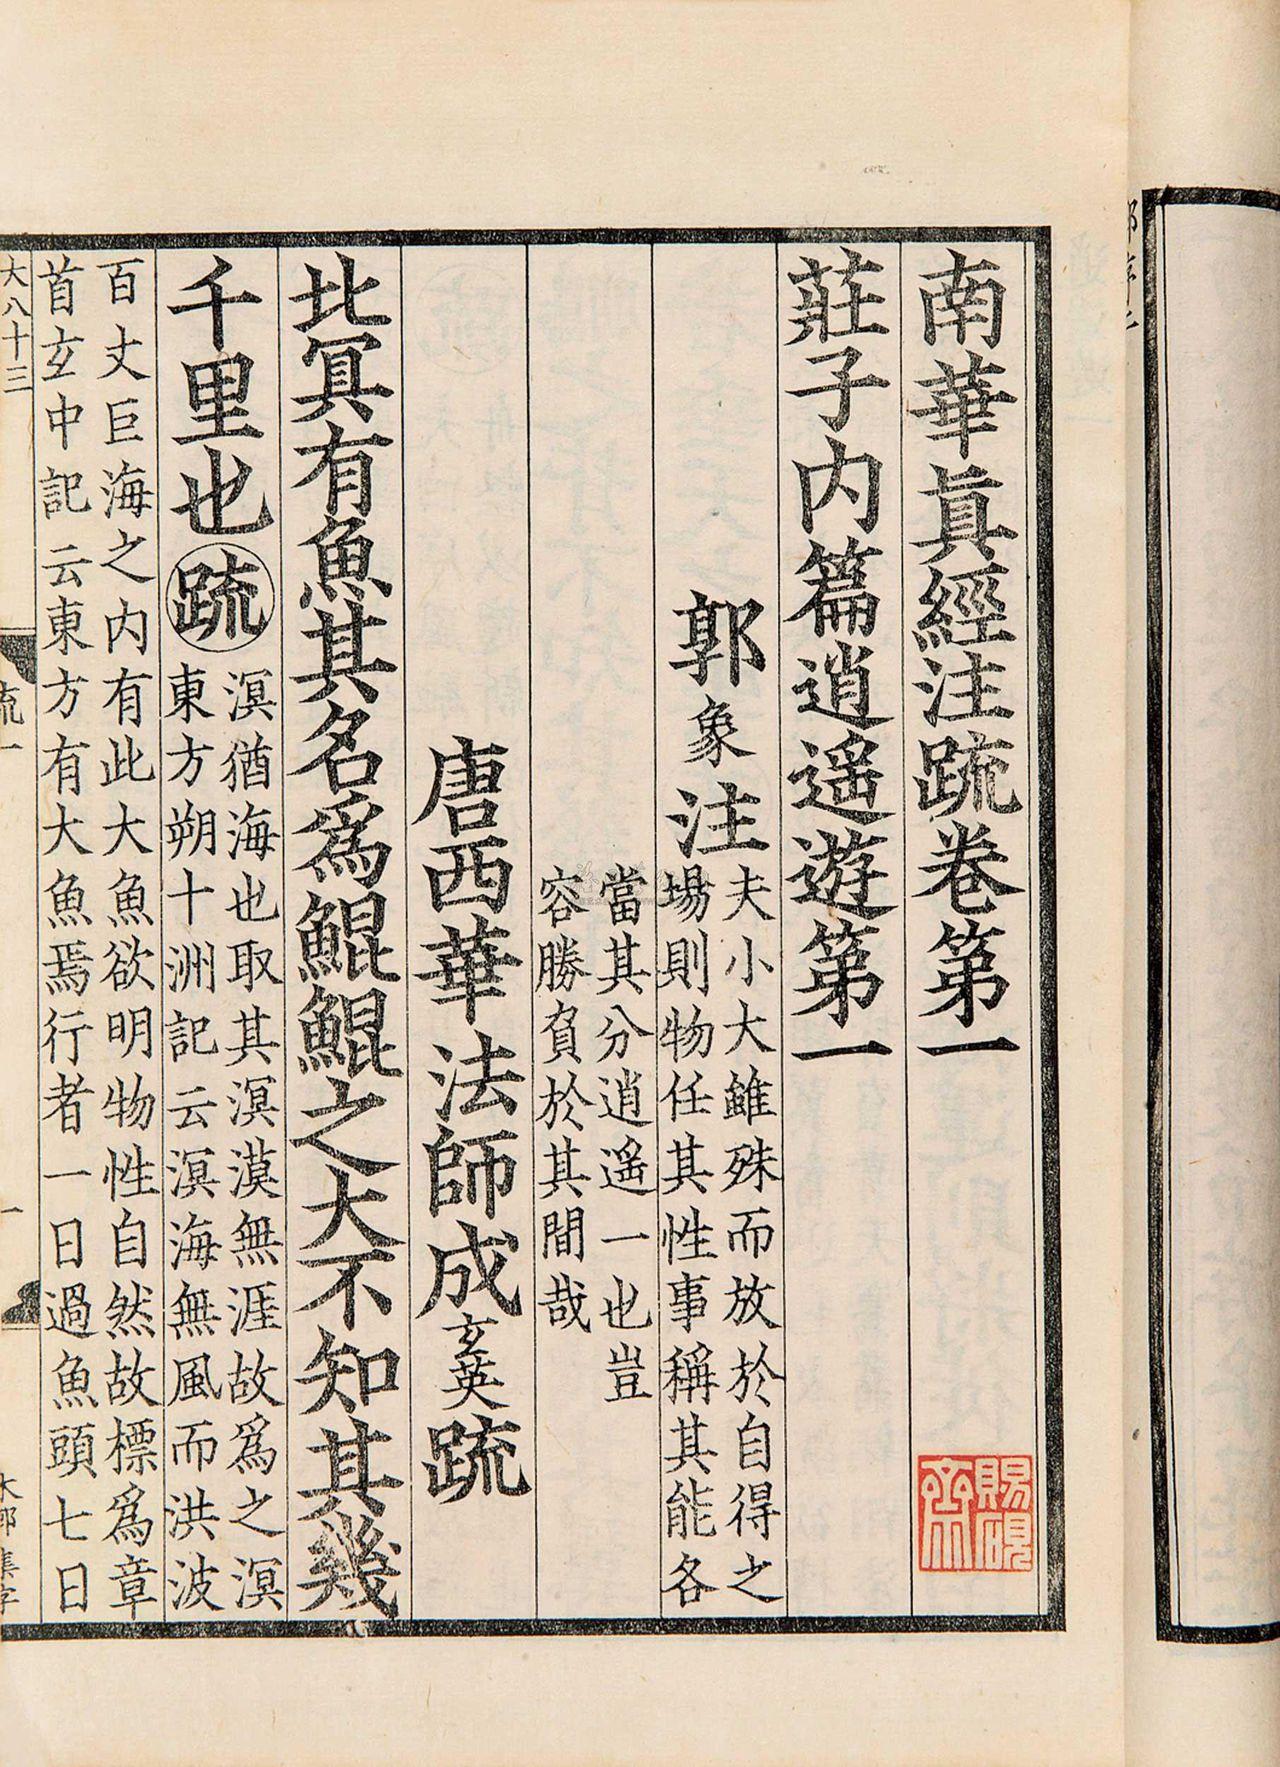 南華眞經注疏卷第一
莊子内篇逍遙遊第一
郭象注
夫小大雖殊而放於自得之
場則物任其性事稱其能各
當其分逍遙一也豈
容勝負於其間哉
唐西華法師成玄英疏
北冥有魚其名爲鯤鯤之大不知其幾
千里也疏
溟猶海也取其溟漠無涯故爲之溟
東方朔十洲記云溟海無風而洪波
百丈巨海之内有此大魚欲明物性自然故標爲章
首玄中記云東方有大魚焉行者一日過魚頭七日
大八十三
疏一
一
賜硯齋